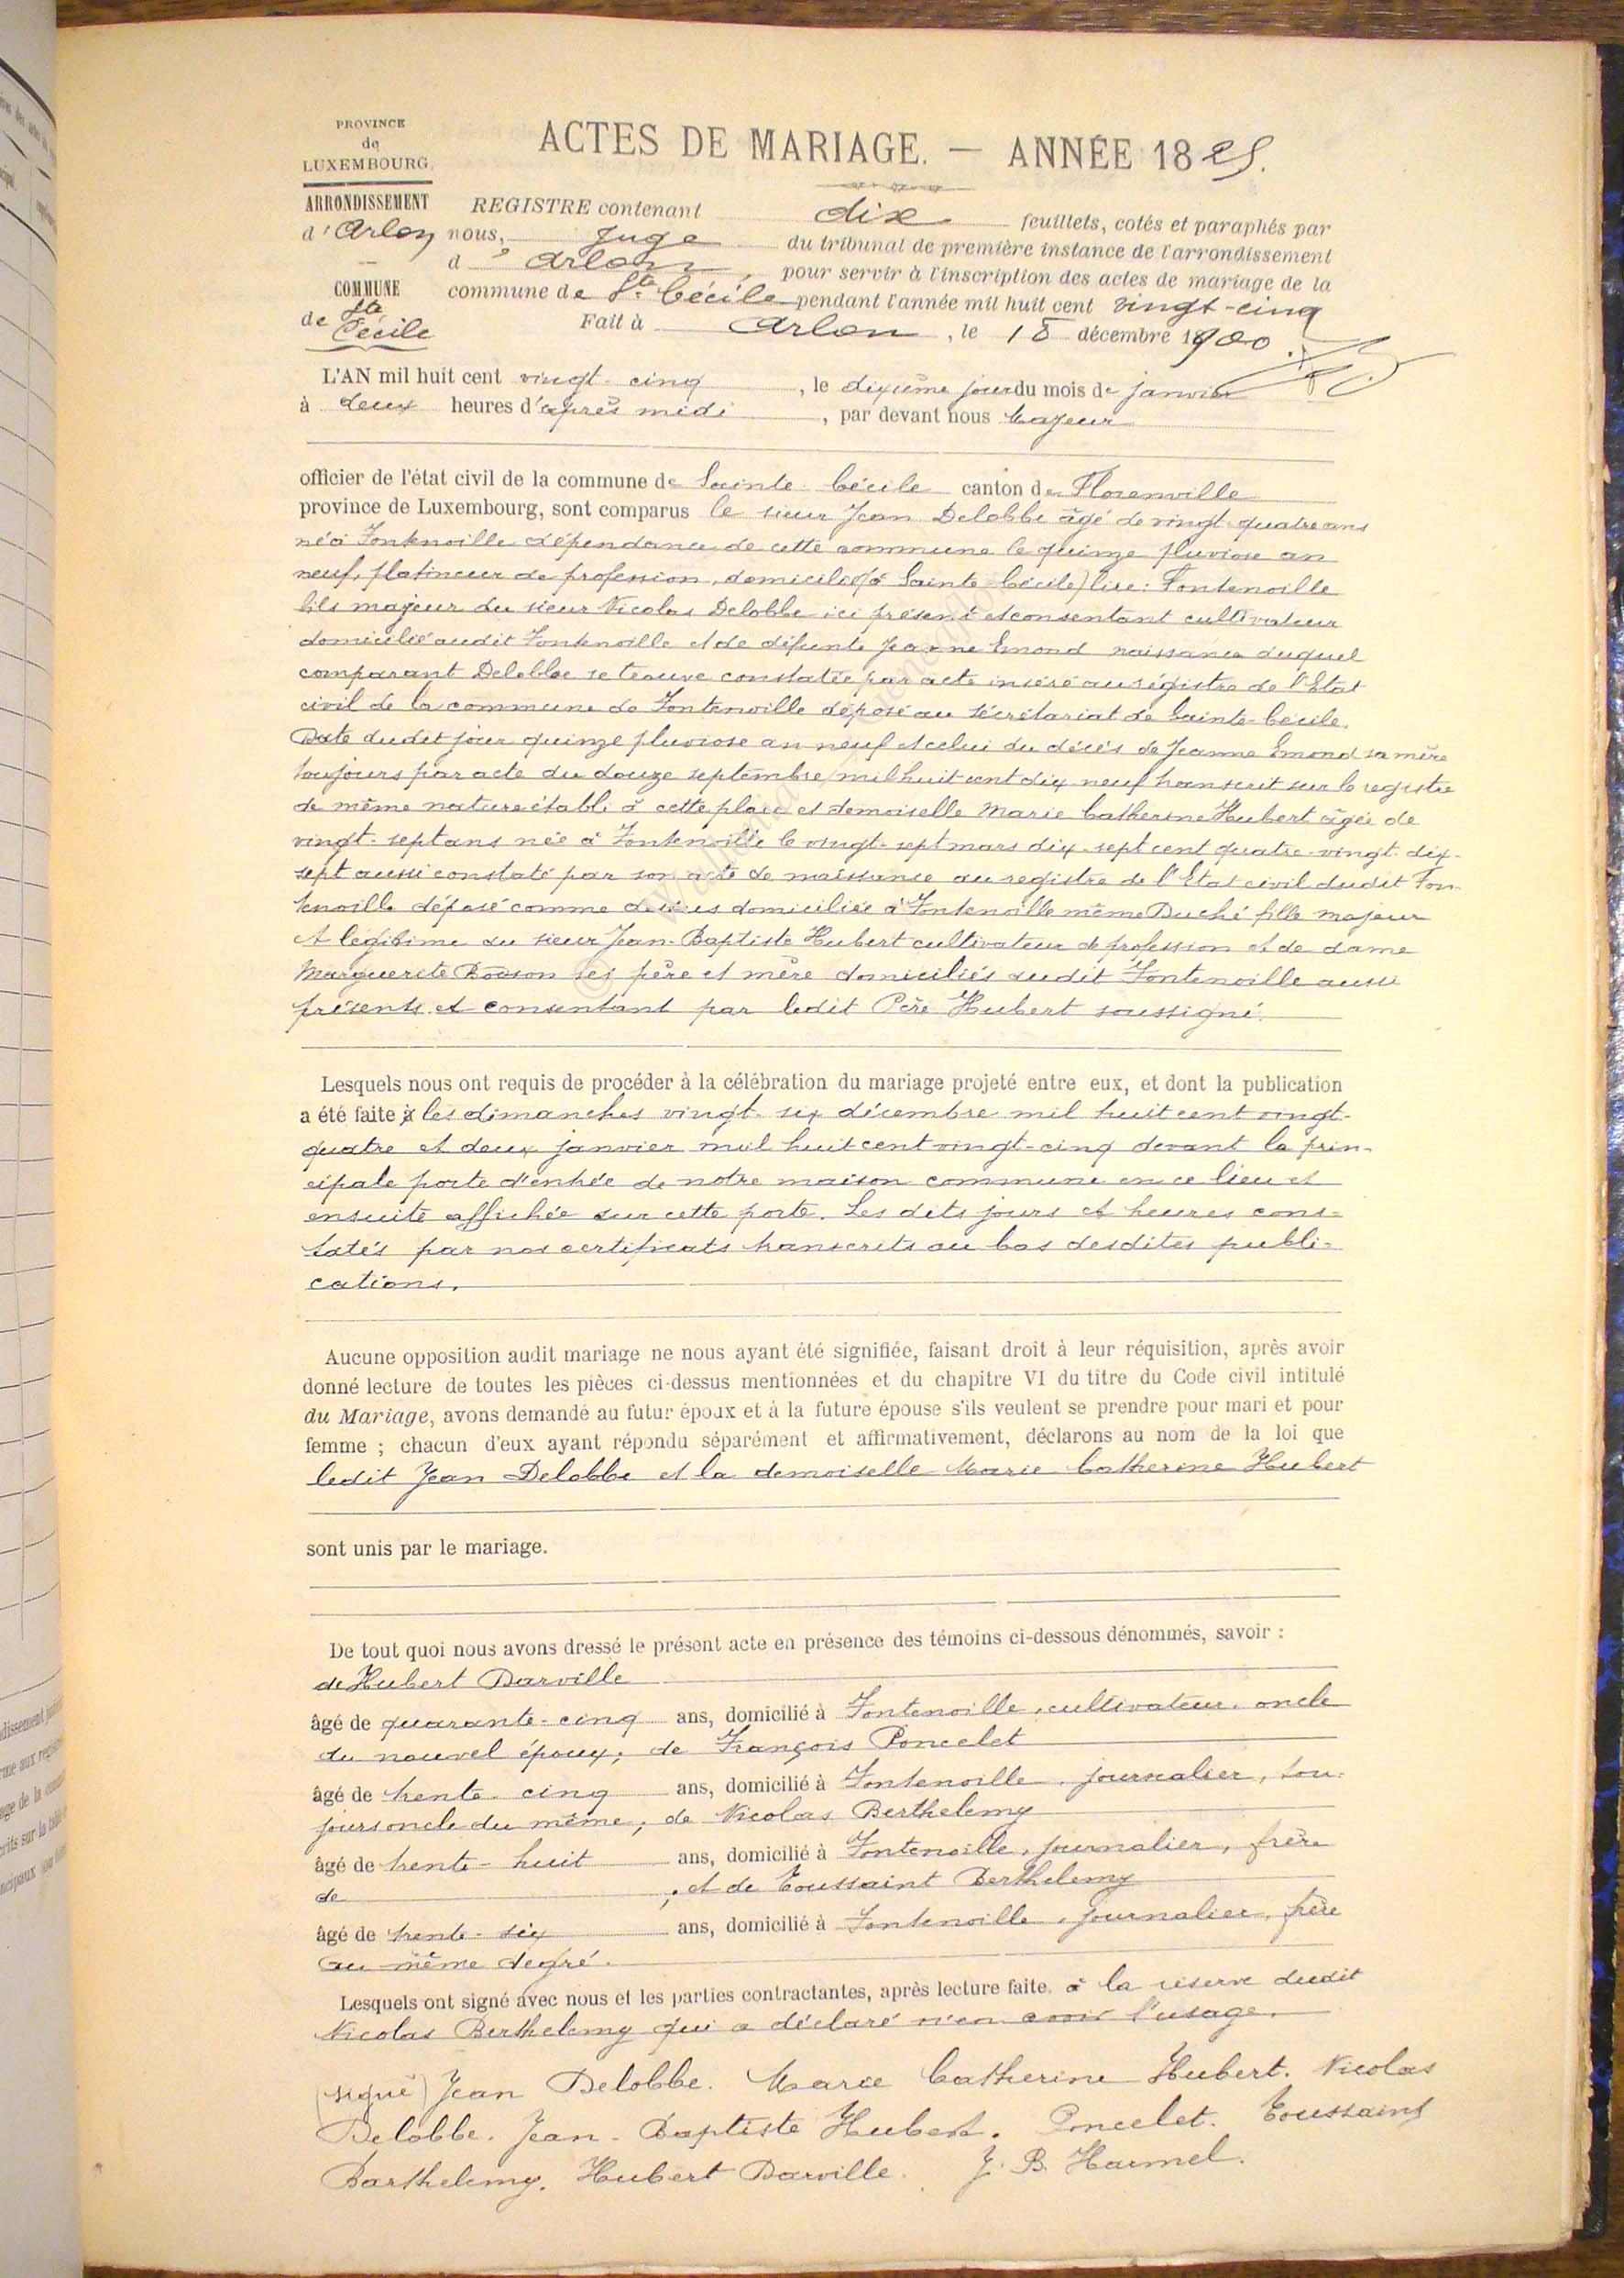 PROVINCE
de
LUXEMBOURG.
ARRONDISSEMENT
d'Arlon
COMMUNE
de Ste
Cécile
ACTES DE MARIAGE. — ANNÉE 1825.
REGISTRE contenant dix feuillets, cotés et paraphés par
nous, Juge du tribunal de première instance de l'arrondissement
d'Arlon, pour servir à l'inscription des actes de mariage de la
commune de Ste Cécile pendant l'année mil huit cent vingt-cinq
Fait à Arlon, le 18 décembre 1900.
L'AN mil huit cent vingt-cinq, le dixième jour du mois de janvier
à deux heures d'après midi, par devant nous Majeur
officier de l'état civil de la commune de Sainte-Cécile canton de Florenville
province de Luxembourg, sont comparus le sieur Jean Delobbe âgé de vingt-quatre ans
né à Fontenoille dépendance de cette commune le quinze pluviose an
neuf, platineur de profession, domicilié (à Sainte-Cécile) lire: Fontenoille
fils majeur du sieur Nicolas Delobbe ici présent et consentant cultivateur
domicilié audit Fontenoille et de défunte Jeanne Emond naissance duquel
comparant Delobbe se trouve constatée par acte inséré au régistre de l'Etat
civil de la commune de Fontenoille déposé au sécrétariat de Sainte-Cécile.
Date dudit jour quinze pluviose an neuf et celui du décès de Jeanne Emond sa mère
toujours par acte du douze septembre mil huit cent dix-neuf transcrit sur le registre
de même nature établi à cette place et demoiselle Marie Catherine Hubert âgée de
vingt-sept ans née à Fontenoille le vingt-sept mars dix-sept cent quatre-vingt-dix-
sept aussi constaté par son acte de naissance au registre de l'Etat civil dudit Fon-
tenoille déposé comme dessus domiciliée à Fontenoille même Duché fille majeur
et légitime du sieur Jean-Baptiste Hubert cultivateur de profession et de dame
Marguerite ses père et mère domiciliés dudit Fontenoille aussi
présents et consentant par ledit Père Hubert soussigné.
Lesquels nous ont requis de procéder à la célébration du mariage projeté entre eux, et dont la publication
a été faite à les dimanches vingt-six décembre mil huit cent vingt-
quatre et deux janvier mil huit cent vingt-cinq devant la prin-
cipale porte d'entrée de notre maison commune en ce lieu et
ensuite affichée sur cette porte. Les dits jours et heures cons-
tatés par nos certificats transcrits au bas desdites publi-
cations.
Aucune opposition audit mariage ne nous ayant été signifiée, faisant droit à leur réquisition, après avoir
donné lecture de toutes les pièces ci-dessus mentionnées et du chapitre VI du titre du Code civil intitulé
du Mariage, avons demandé au futur époux et à la future épouse s'ils veulent se prendre pour mari et pour
femme ; chacun d'eux ayant répondu séparément et affirmativement, déclarons au nom de la loi que
ledit Jean Delobbe et la demoiselle Marie Catherine Hubert
sont unis par le mariage.
De tout quoi nous avons dressé le présent acte en présence des témoins ci-dessous dénommés, savoir :
de Hubert Darville
âgé de quarante-cinq ans, domicilié à Fontenoille, cultivateur, oncle
du nouvel époux; de François Poncelet
âgé de trente-cinq ans, domicilié à Fontenoille, journalier, tou-
jours oncle du même; de Nicolas Berthelemy
âgé de trente-huit ans, domicilié à Fontenoille, journalier, frère
de ; et de Toussaint Berthelemy
âgé de trente-six ans, domicilié à Fontenoille, journalier, frère
au même degré.
Lesquels ont signé avec nous et les parties contractantes, après lecture faite. à la réserve dudit
Nicolas Berthelemy qui a déclaré n'en avoir l'usage.
(signé) Jean Delobbe. Marie Catherine Hubert. Nicolas
Delobbe. Jean-Baptiste Hubert. Poncelet. Toussaint
Barthelemy. Hubert Darville. J. B. Harmel.